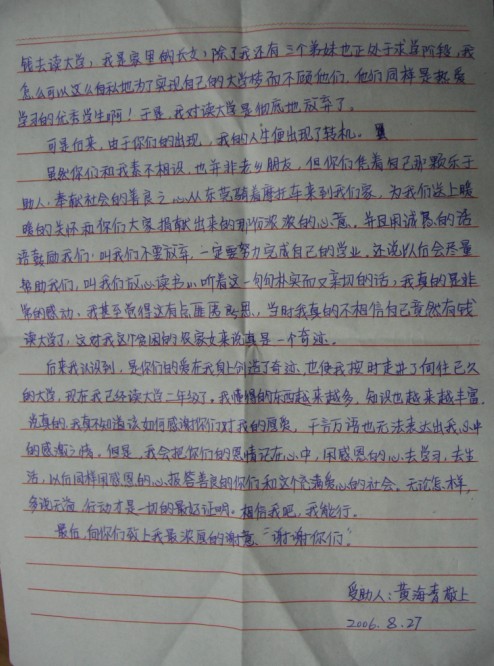 钱去读大学，我是家里的长女，除了我还有三个弟妹也正处于求学阶段，我
怎么可以这么自私地为了实现自己的大学梦而不顾他们，他们同样是热爱
学习的优秀学生啊！于是，我对读大学是彻底地放弃了。
可是后来，由于你们的出现，我的人生便出现了转机。
虽然你们和我素不相识，也并非老乡朋友，但你们凭着自己那颗乐于
助人，奉献社会的善良之心从东莞骑着摩托车来到我们家，为我们送上暖
暖的关怀和你们大家捐献出来的那份浓浓的心意，并且用诚恳的话
语鼓励我们，叫我们不要放弃，一定要努力完成自己的学业，还说以后会尽量
帮助我们，叫我们放心读书。听着这一句句朴实而又亲切的话，我真的是非
常的感动，我甚至觉得这有点匪夷所思，当时我真的不相信自己竟然有钱
读大学了，这对我这个贫困的农家女来说真是一个奇迹。
后来我认识到，是你们的爱在我身上创造了奇迹，也使我按时走进了向往已久
的大学，现在我已经读大学二年级了，我懂得的东西越来越多，知识也越来越丰富，
说真的，我真不知道该如何感谢你们对我的厚爱，千言万语也无法表达出我心中
的感激之情，但是，我会把你们的恩情记在心中，用感恩的心去学习，去生
活，以后同样用感恩的心报答善良的你们和这个充满爱心的社会，无论怎样，
多说无益，行动才是一切的最好证明。相信我吧，我能行。
最后，向你们致上我最深厚的谢意，“谢谢你们”
受助人：黄海青敬上
2006.8.27